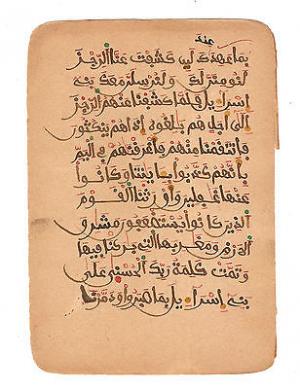 عند
بما عهدك لين كشفت عنا الرجز
لنومنن لك ولنرسلن معك بني
اسراءيل فلما كشفنا عنهم الرجز
الى اجل هم بلغوه اذا هم ينكثون
فانتقمنا منهم فاغرقنهم في اليم
بانهم كذبوا بايتنا وكانوا
عنها غفلين واورثنا القوم
الذين كانوا يستضعفون مشرق
الارض ومغربها التي بركنا فيها
وتمت كلمة ربك الحسنى على
بني اسراءيل بما صبروا ودمرنا